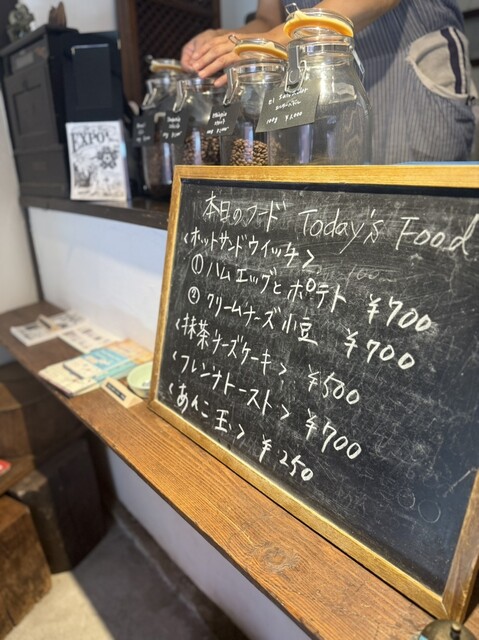 El Salvador
100g ¥1,000
EXPO
本日のフード Today's Food
<ホットサンドウィッチ>
① ハムエッグとポテト ¥700
② クリームチーズ小豆 ¥700
<抹茶チーズケーキ> ¥500
<フレンチトースト> ¥700
<あんこ玉> ¥250